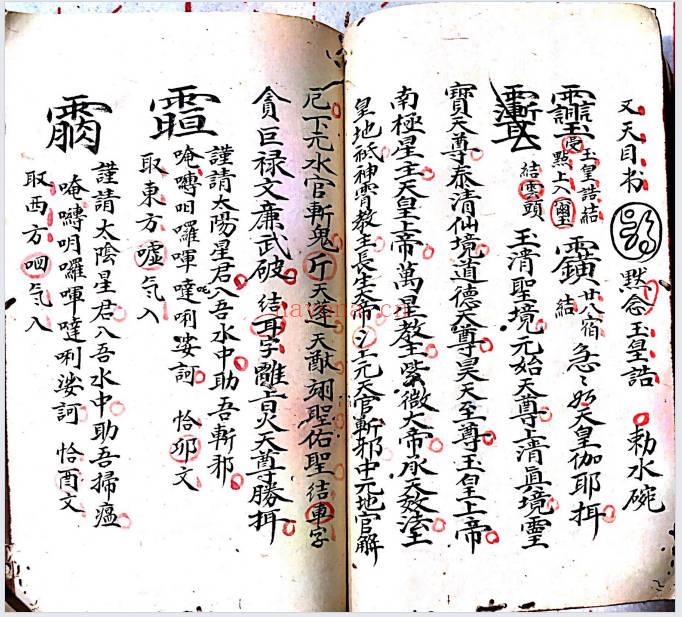 又天目书 默念玉皇誥 敕水碗
玉皇誥結 點上入 結 廿八宿 急〻如天皇伽耶揖
結雲頭 玉清聖境元始天尊上清真境靈
寶天尊泰清仙境道德天尊昊天至尊玉皇上帝
南極星主天皇上帝萬星教主紫微大帝承天效法土
皇地祇神霄教主長生大帝上元天官斬邪中元地官解
厄下元水官斬鬼 天逢天猷翊聖佑聖結車字
貪巨禄文廉武破 結耳字離宫火天尊勝揖
謹請太陽星君入吾水中助吾斬邪
唵嚩呬囉嗶噠唎娑訶 恰卯文
取東方噓气入
謹請太陰星君入吾水中助吾掃瘟
唵嚩呬囉嗶噠唎娑訶 恰酉文
取西方呬气入
nayona.cn